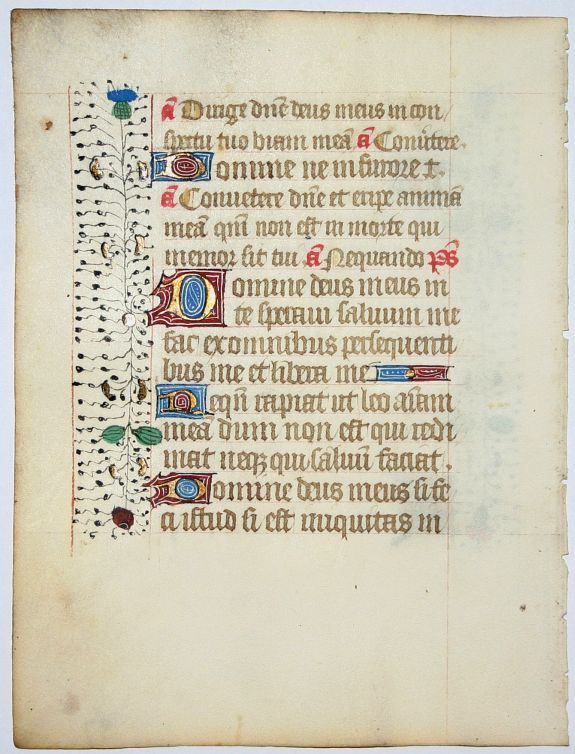 a Dirige dn̄e deus meus in con
spectu tuo viam meā a Conūtere.
Domine ne in furore t.
a Convetere dn̄e et eripe animā
meā qm̄ non est in morte qui
memor sit tui a Nequando ps̄
Domine deus meus in
te speravi saluum me
fac ex omnibus persequenti
bus me et libera me
Neqn̄ rapiat ut leo aīam
meā dum non est qui redi
mat neqꝫ qui saluū faciat.
Domine deus meus si fe
ci istud si est iniquitas in